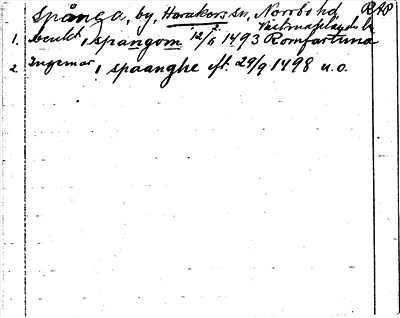 Spånga, by, Harakers sn, Norrbo hd, RAP
Västmanlands län
1. benkt, i spangom 12/6 1493 Romfartuna
2. Ingemar, i spaanghe eft. 29/9 1498 u.o.